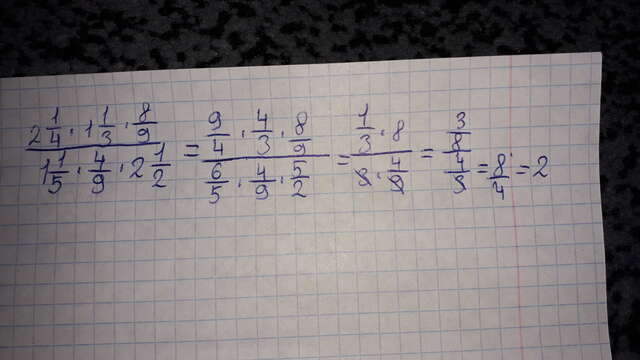 2 1/4 · 1 1/3 · 8/9 / 1 1/5 · 4/9 · 2 1/2 = 9/4 · 4/3 · 8/9 / 6/5 · 4/9 · 5/2 = 1/3 · 8 / = = 8/4 = 2